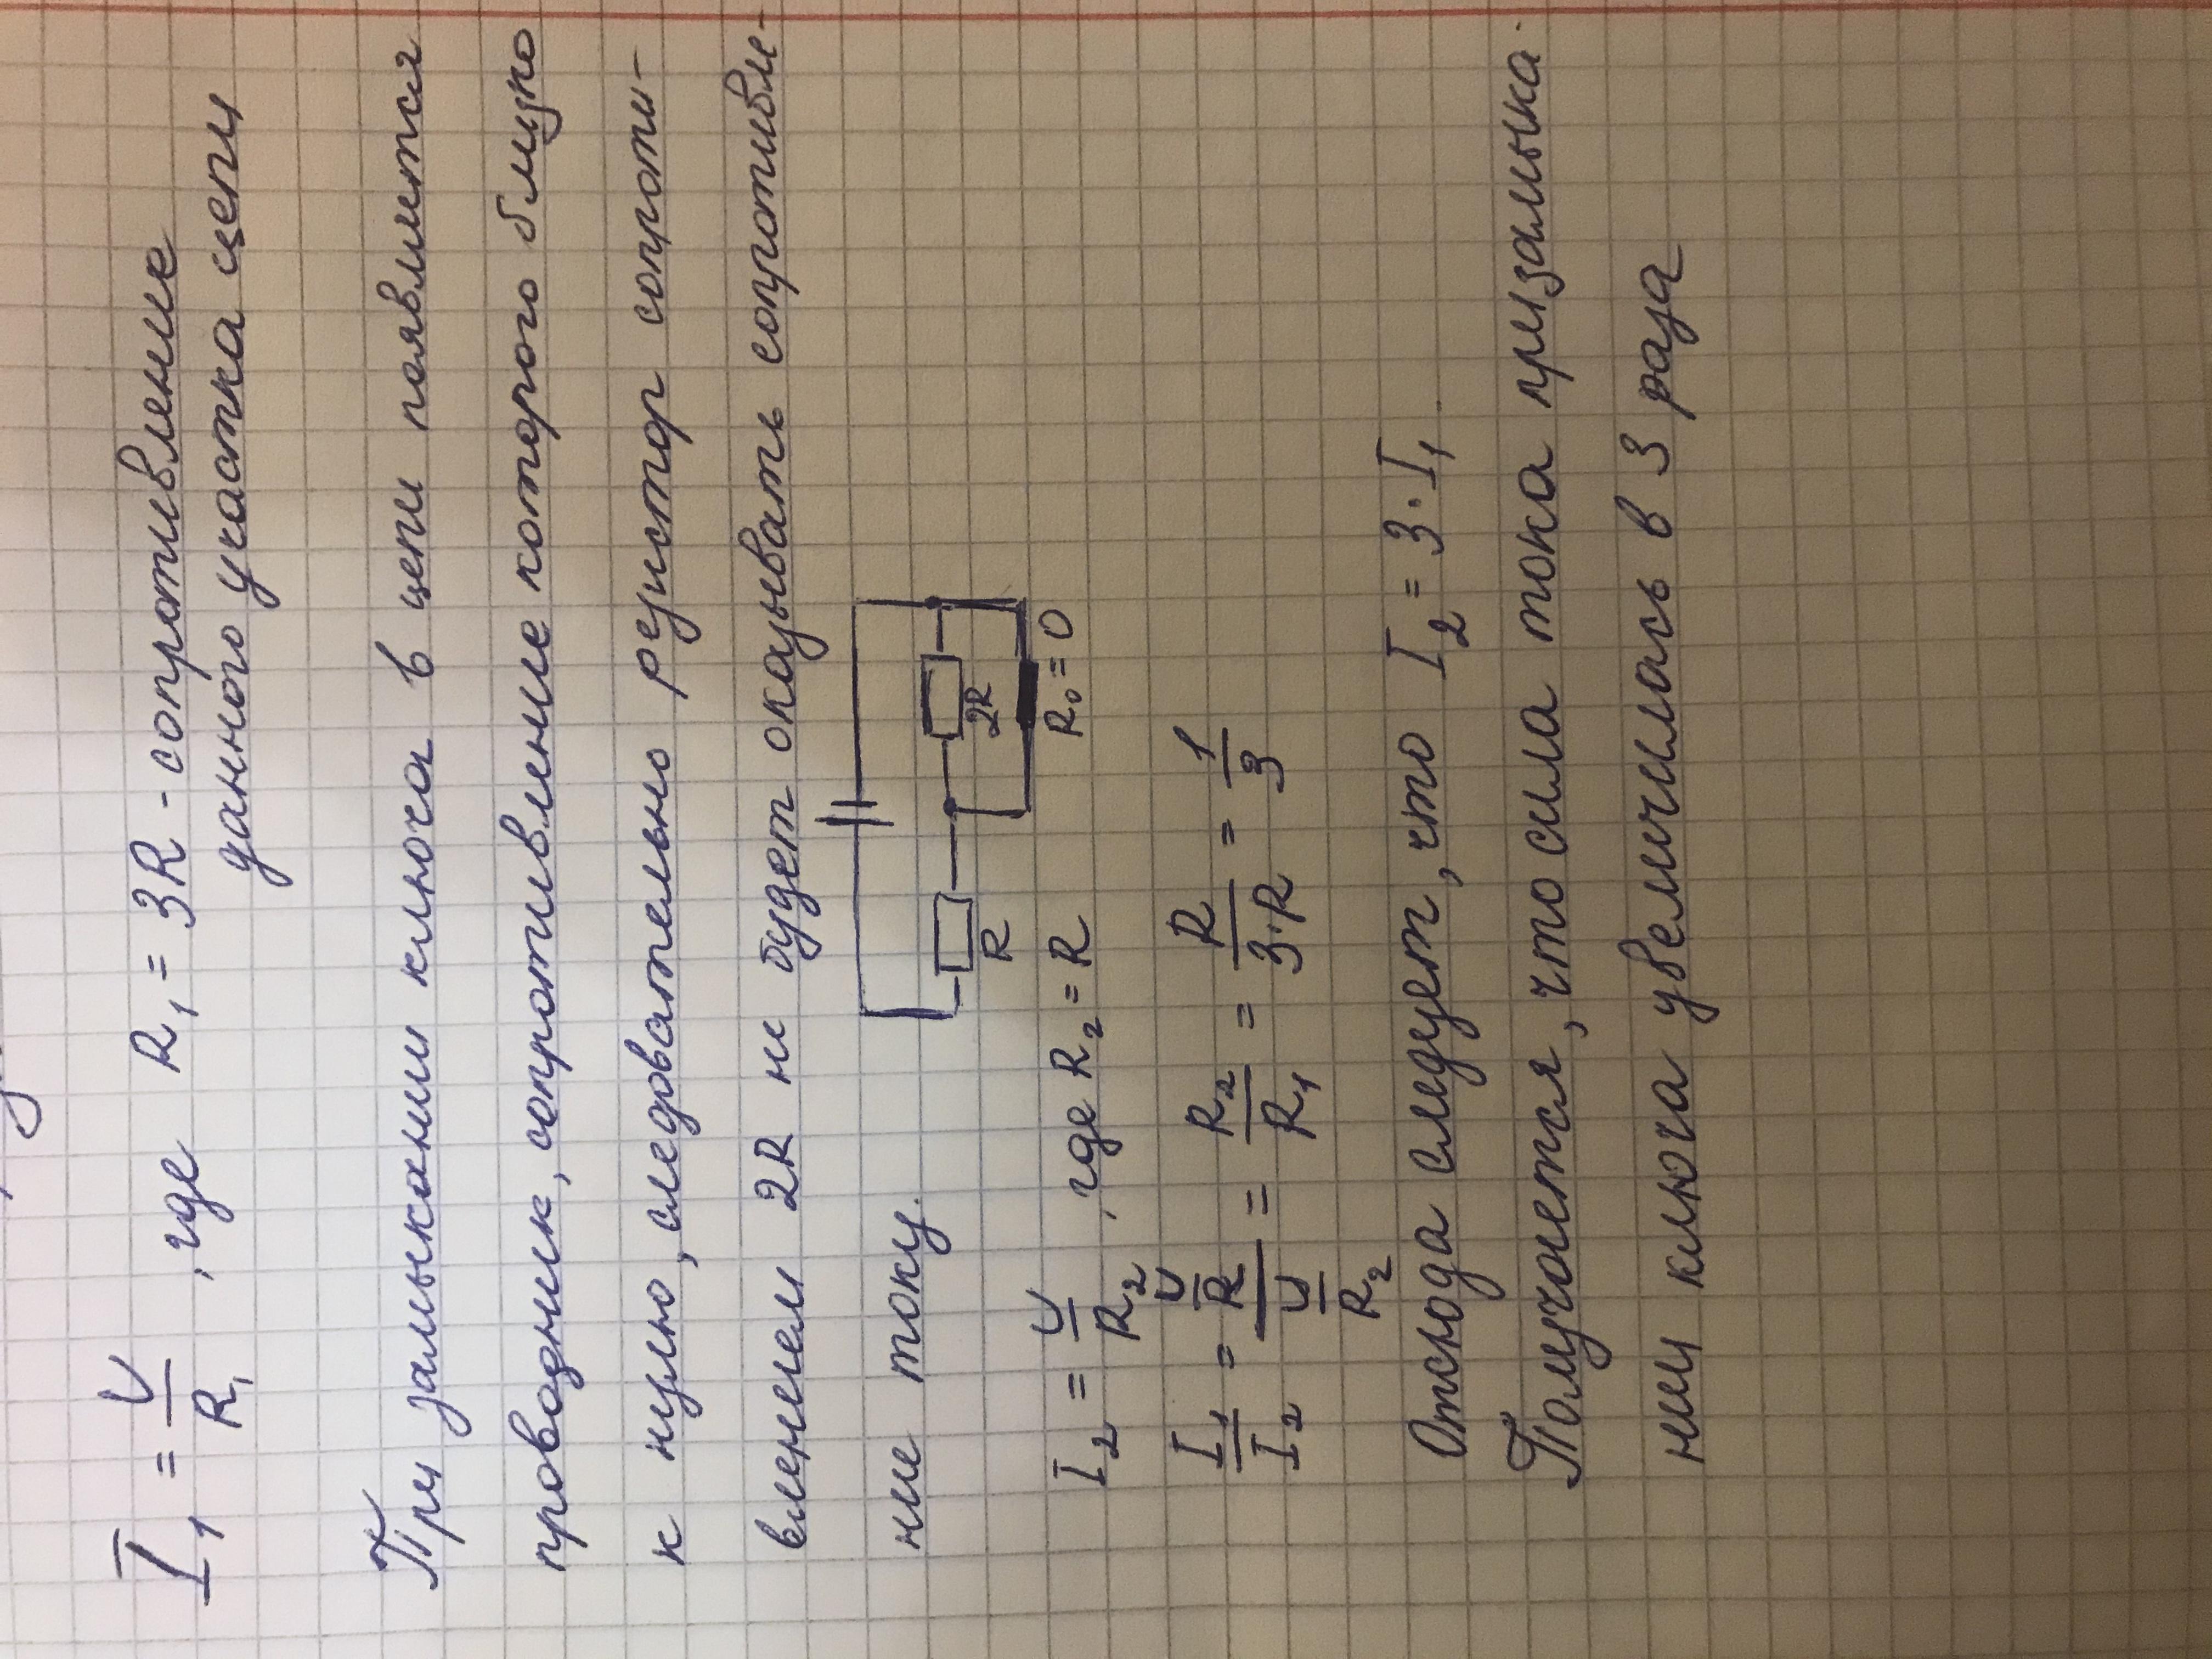 I₁ = U/R₁, где R₁ = 3R - сопротивление
данного участка цепи
При замыкании ключа в цепи появляется
проводник, сопротивление которого близко
к нулю, следовательно резистор сопроти-
влением 2R не будет оказывать сопротивле-
ние току.
R
2R
R₀ = 0
I₂ = U/R₂, где R₂ = R
I₁/I₂ = (U/R)/(U/R₂) = R₂/R₁ = R/(3·R) = 1/3
Отсюда следует, что I₂ = 3·I₁.
Получается, что сила тока призамыка-
нии ключа увеличилась в 3 раза